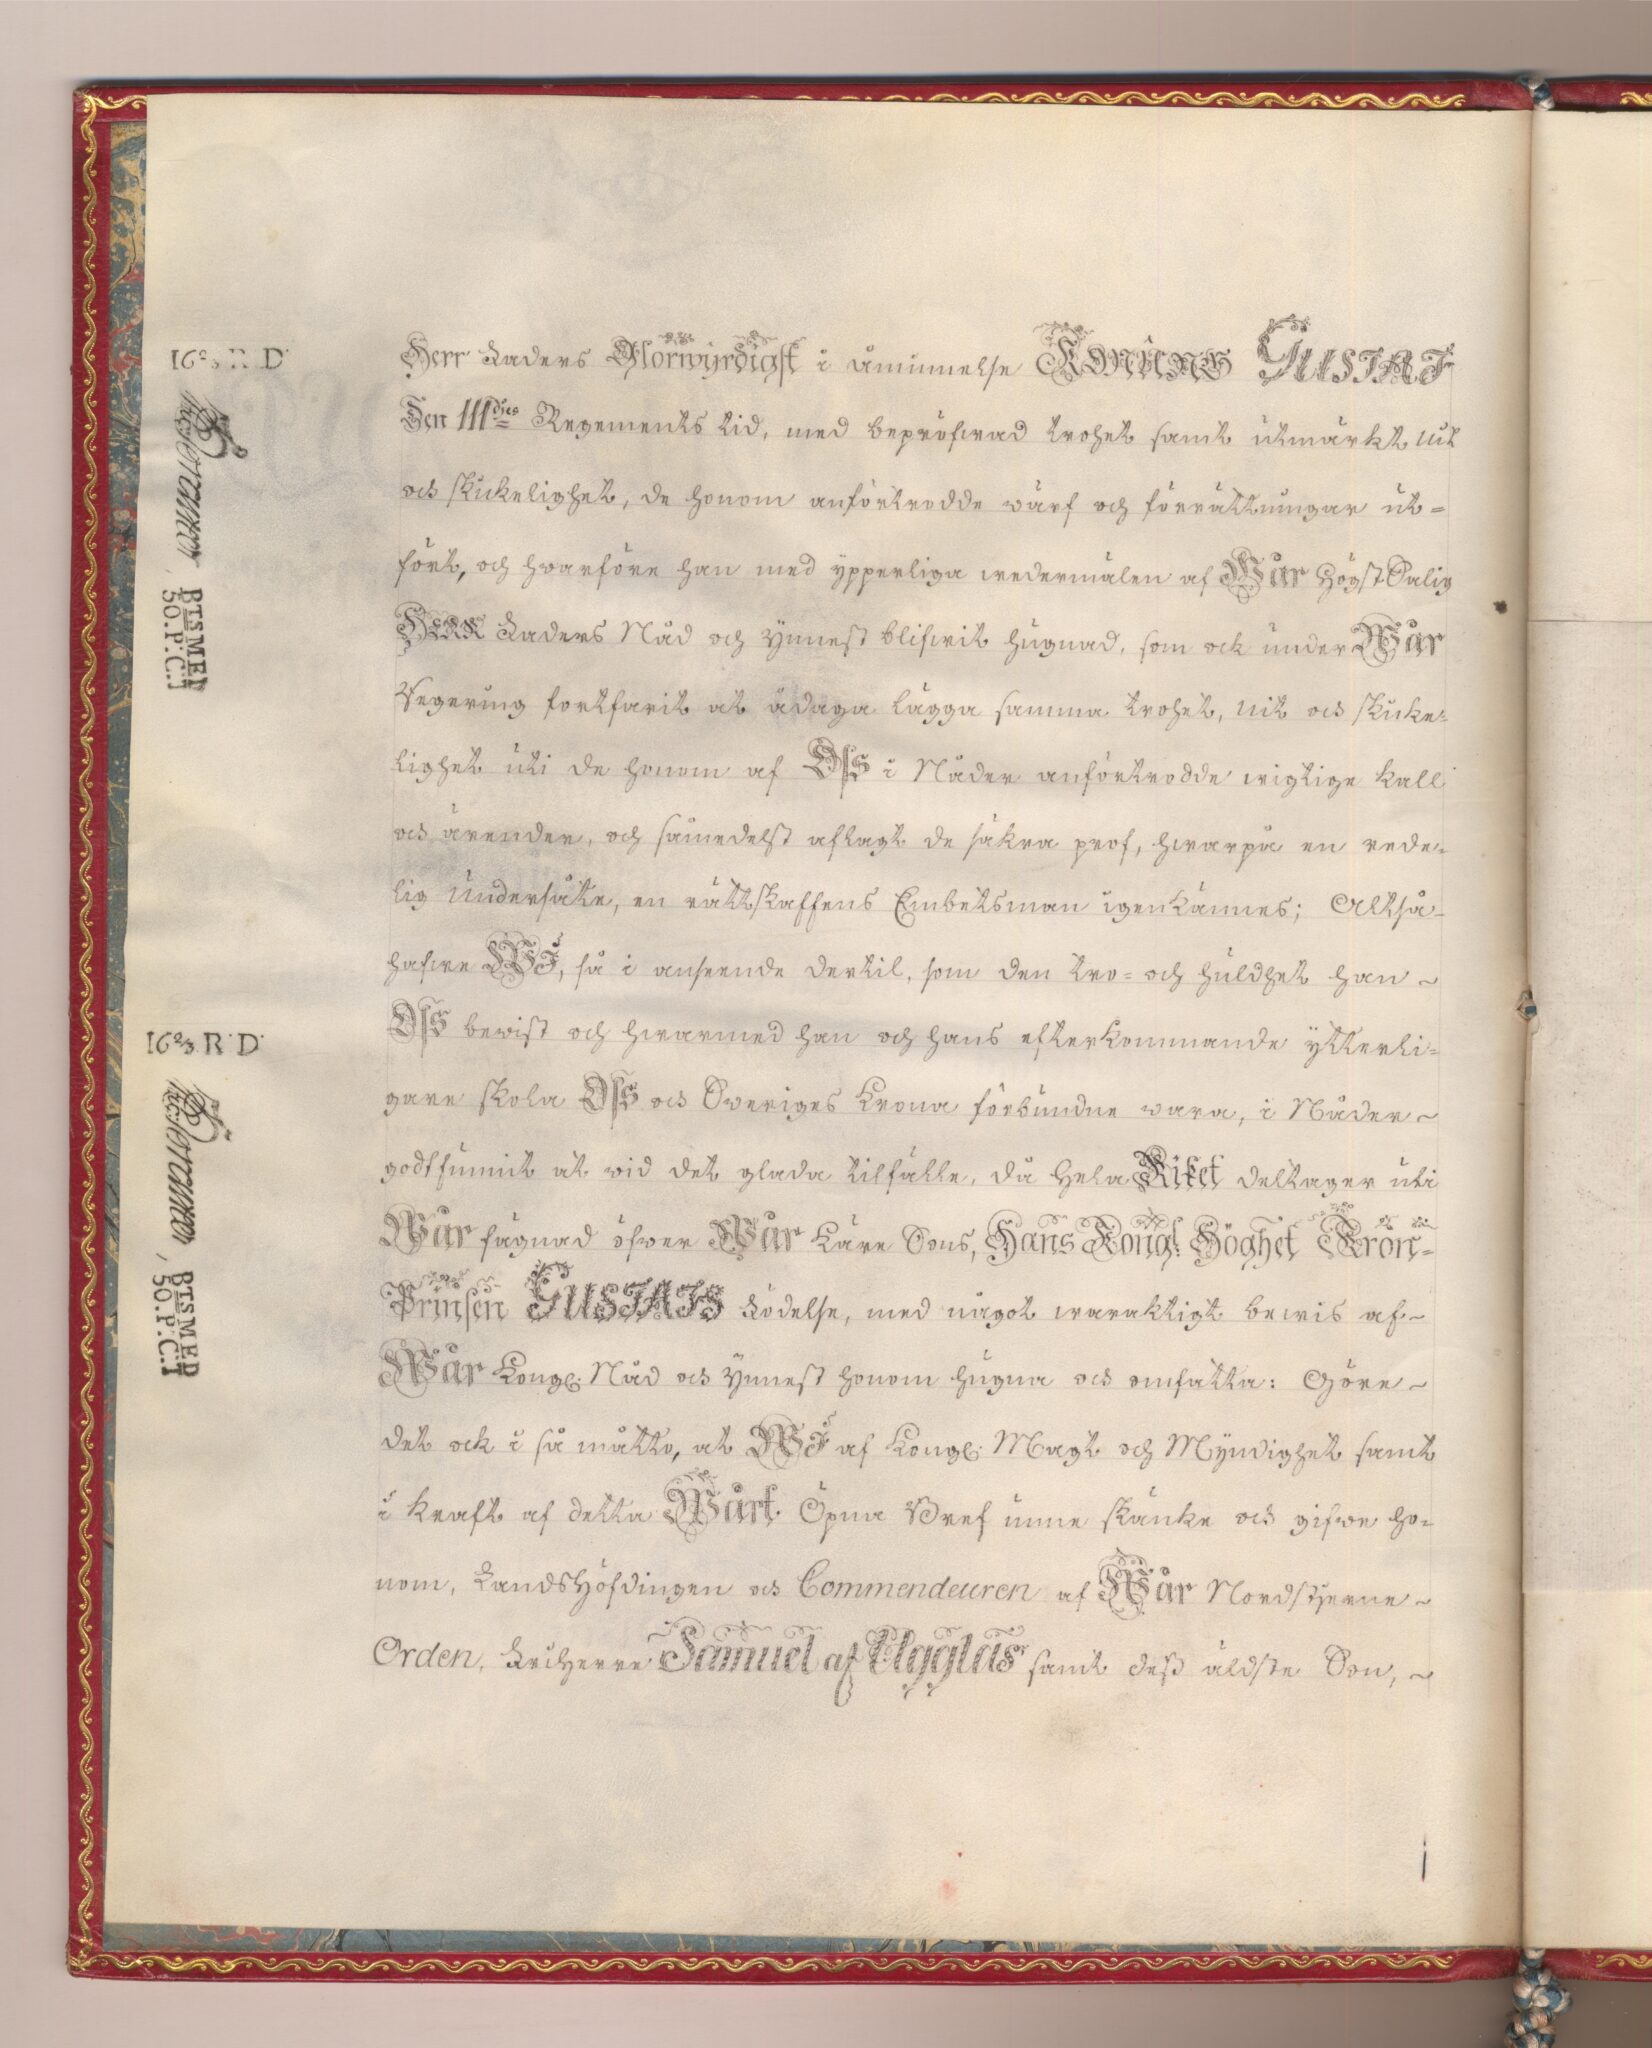 Herr Faders Glorwyrdigst i åminnelse KONUNG GUSTAF
Den III.dies Regements tid, med bepröfwad trohet samt utmärkt nit
och skickelighet, de honom anförtrodde wärf och förrättningar ut=
fört, och hwarföre han med ypperliga wedermälen af Wår Högst Salig
HERR Faders Nåd och Ynnest blifwit hugnad, som ock under Wår
Regering fortfarit at ådaga lägga samma trohet, nit och skicke=
lighet uti de honom af Oss i Nåder anförtrodde wigtige kall
och ärender, och såmedelst aflagt de säkra prof, hwarpå en rede=
lig undersåte, en rättskaffens Embetsman igenkännes; Altså
hafwe WI, så i anseende dertil, som den tro= och huldhet han ~
Oss bewist och hwarmed han och hans efterkommande ytterli=
gare skola Oss och Sweriges Krona förbundne wara, i Nåder ~
godtfunnit at wid det glada tilfälle, då hela Riket deltager uti
Wår fägnad öfwer Wår Käre Sons, Hans Kongl: Höghet Kron=
Prinsen GUSTAFS födelse, med något waraktigt bewis af ~
Wår Kongl: Nåd och Ynnest honom hugna och omfatta: Göre ~
det ock i så måtto, at WI af Kongl: Magt och Myndighet samt
i kraft af detta Wårt Öpna Bref unne skänke och gifwe ho=
nom, Landshöfdingen och Commendeuren af Wår Nordstjerne ~
Orden, Friherre Samuel af Ugglas samt dess äldste Son, ~
16 2/3 R: D:
BTSMEP
50. P: C:
16 2/3 R: D:
BTSMEP
50. P: C: